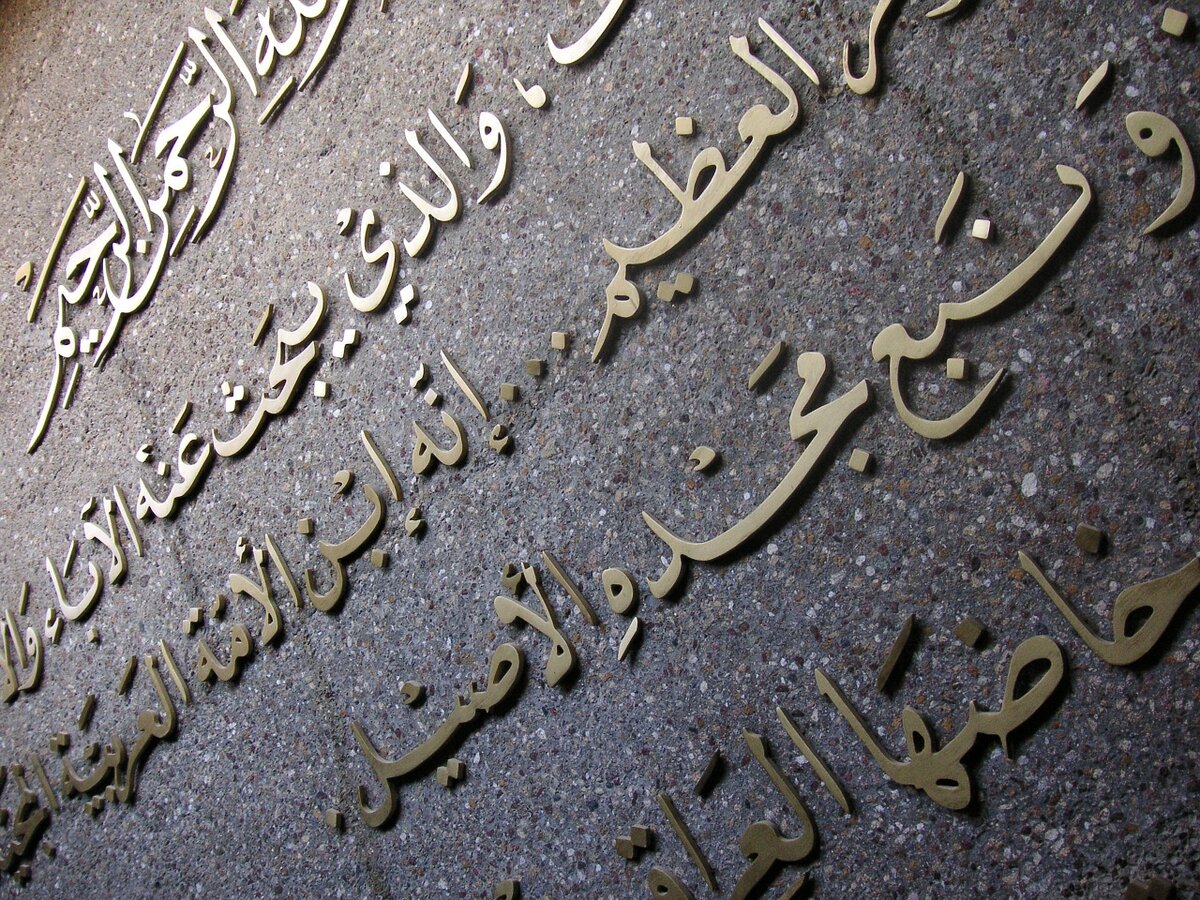 الله الرَّحمن الرَّحيم
، وَالذيْ يبحَث عَنْه الآبَاء
العظيم .. إنّه ابْن الأمَّة العَربيَّة
وَنَبع مَجْدهِ الأصيْل.
حَاضرهَا